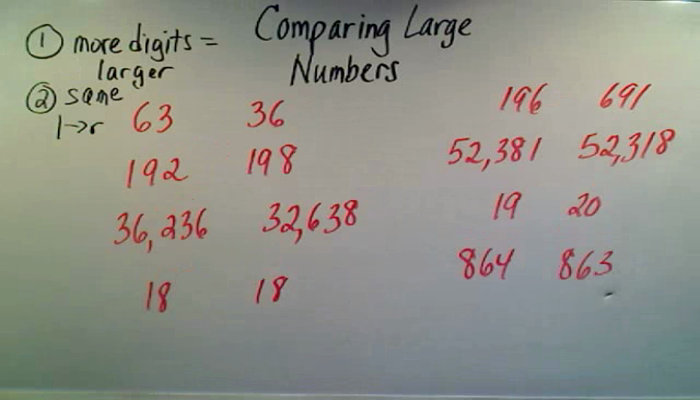 Comparing Large
Numbers
① more digits =
larger
② same
l→r
63 36
192 198
36,236 32,638
18 18
196 691
52,381 52,318
19 20
864 863